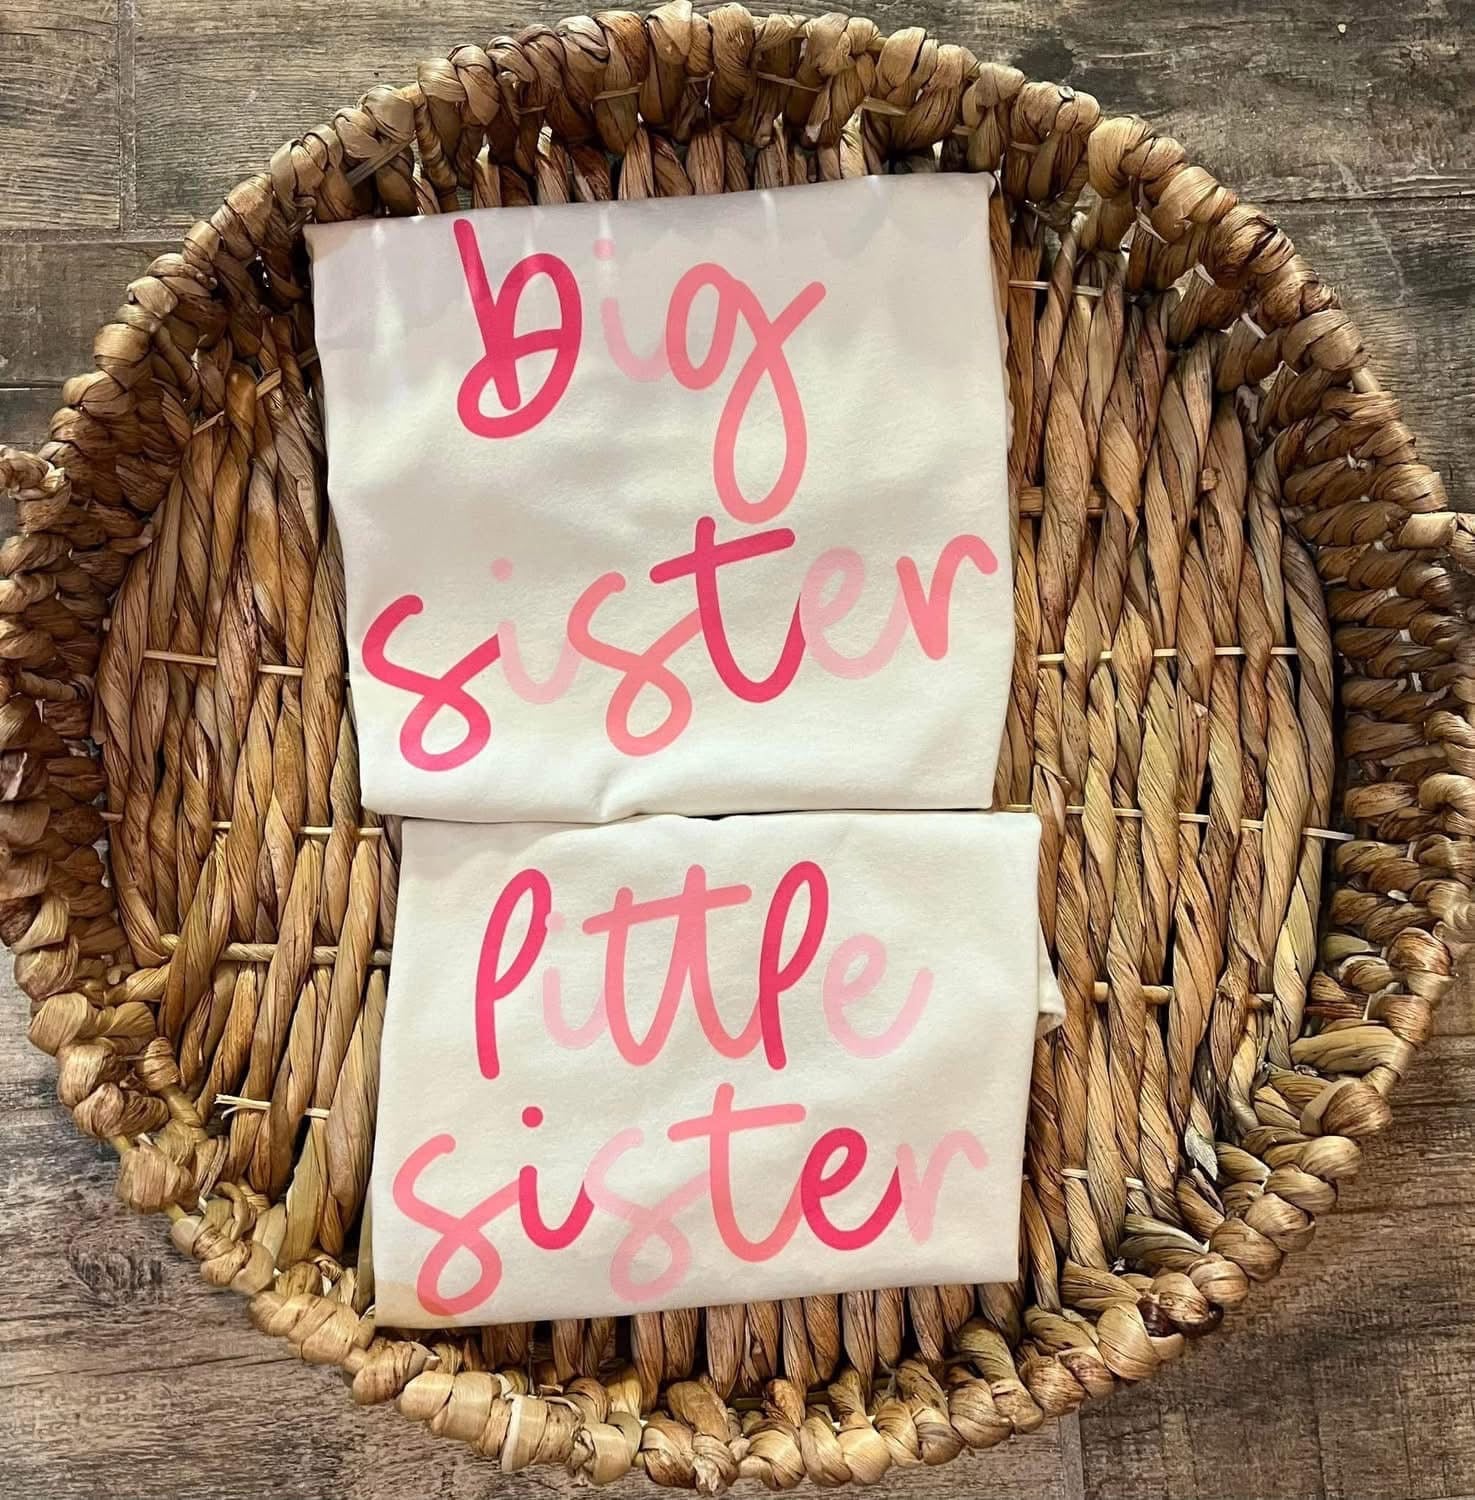 big
sister
little
sister